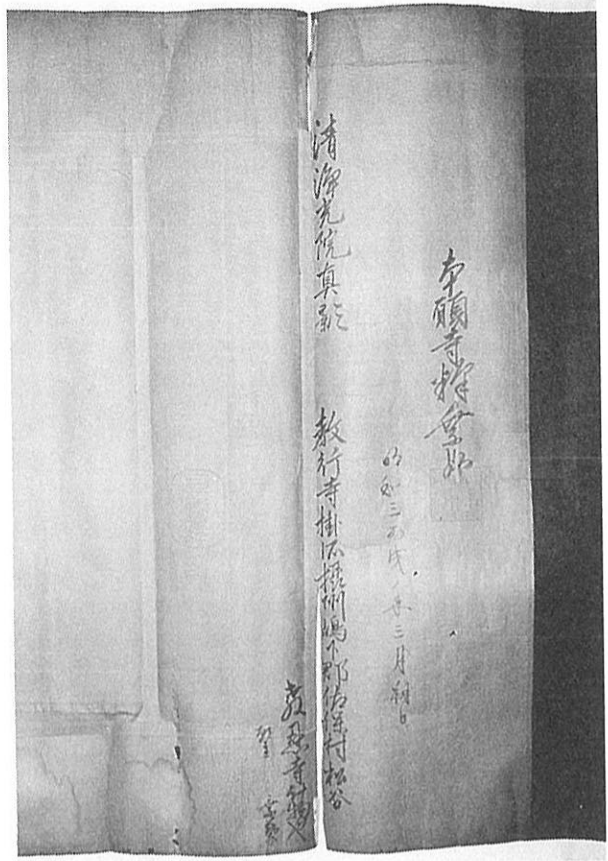 本願寺釋乗如
明和三丙戌年三月朔日
清浄光院真影　教行寺掛所摂州嶋下郡佐保村松谷
教恩寺什物也